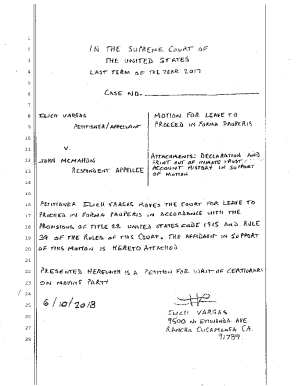 1
2
3
4
5
6
7
8
9
10
11
12
13
14
15
16
17
18
19
20
21
22
23
24
25
26
27
28
IN THE SUPREME COURT OF
THE UNITED STATES
LAST TERM OF THE YEAR 2017
CASE NO.
ELICH VARGAS
PETITIONER/APPELLANT
V.
JOHN MCMAHON
RESPONDENT APPELLEE
MOTION FOR LEAVE TO
PROCEED IN FORMA PAUPERIS
ATTACHMENTS: DECLARATION AND
PRINT OUT OF INMATE TRUST
ACCOUNT HISTORY IN SUPPORT
OF MOTION
PETITIONER ELICH VARGAS MOVES THE COURT FOR LEAVE TO
PROCEED IN FORMA PAUPERIS IN ACCORDANCE WITH THE
PROVISIONS OF TITLE 28 UNITED STATES CODE 1915 AND RULE
39 OF THE RULES OF THIS COURT. THE AFFIDAVIT IN SUPPORT
OF THIS MOTION IS HERETO ATTACHED
PRESENTED HEREWITH IS A PETITION FOR WRIT OF CERTIORARI
ON MOVING PARTY
6/10/2018
ELICH VARGAS
9500 N ETIWANDA AVE
RANCHO CUCAMONGA CA.
91739.